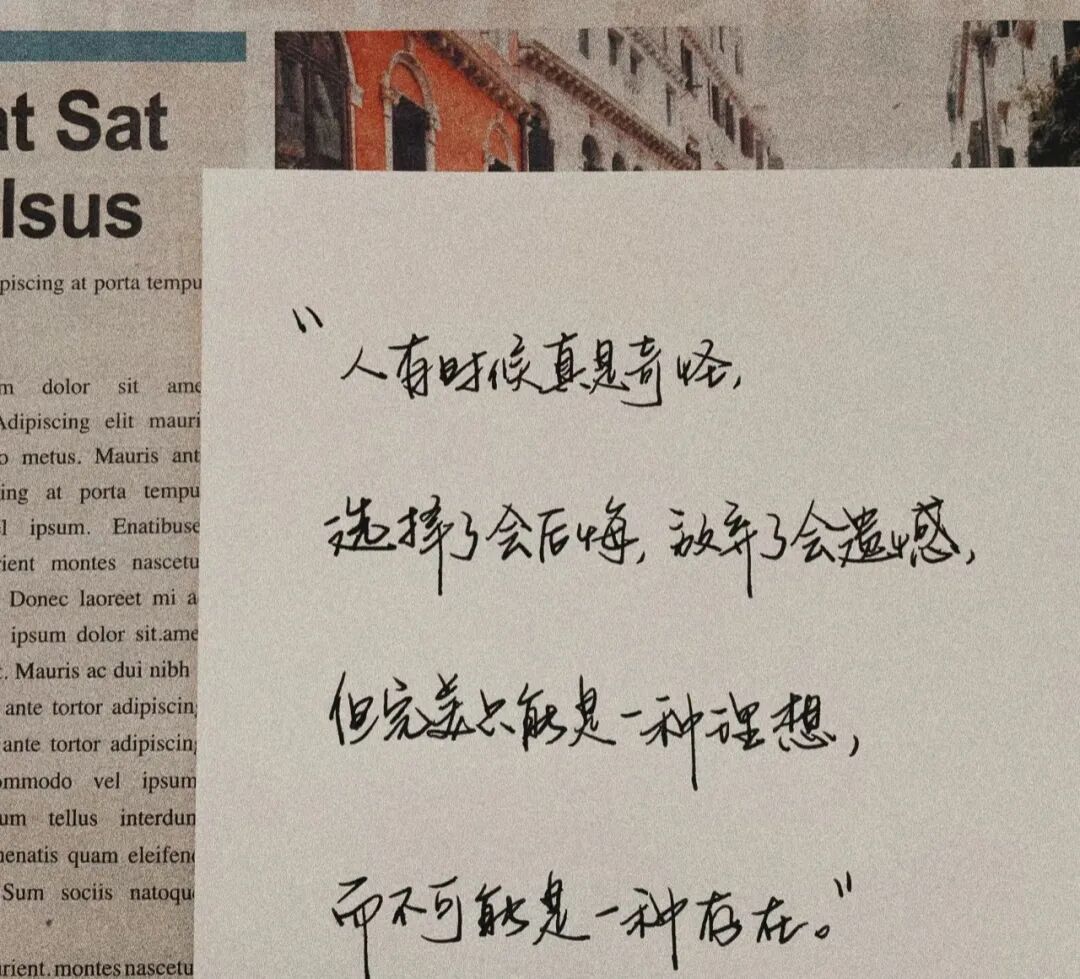 at Sat
lsus
piscing at porta tempu
m dolor sit ame
Adipiscing elit mauri
o metus. Mauris ant
ing at porta tempu
l ipsum. Enatibuse
rient montes nascetu
Donec laoreet mi a
ipsum dolor sit.ame
. Mauris ac dui nibh
ante tortor adipiscin
ante tortor adipiscin
ommodo vel ipsum
um tellus interdun
nenatis quam eleifen
Sum sociis natoqu
rient.montes nascetu
“人有时候真是奇怪,
选择了会后悔,放弃了会遗憾,
但完美只能是一种理想,
而不可能是一种存在。”